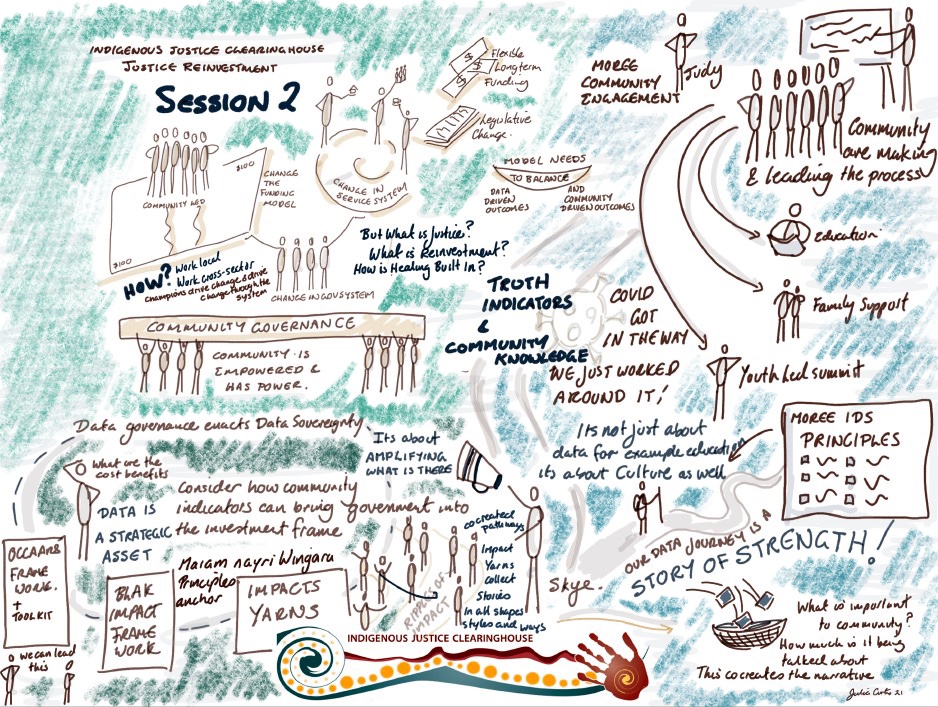 INDIGENOUS JUSTICE CLEARINGHOUSE
JUSTICE REINVESTMENT
SESSION 2
Flexible
Longterm
Funding
Legislative
Change.
$100
CHANGE
THE
FUNDING
MODEL
COMMUNITY LED
$100
CHANGE IN
SERVICE SYSTEM
MODEL NEEDS
TO BALANCE
DATA
DRIVEN
OUTCOMES
AND
COMMUNITY
DRIVEN OUTCOMES
But What is Justice?
What is Reinvestment?
How is Healing Built In?
HOW? Work local
Work cross-sector
Champions drive change & drive
change through the
system
CHANGE IN GOV SYSTEM
COMMUNITY GOVERNANCE
COMMUNITY IS
EMPOWERED &
HAS POWER.
TRUTH
INDICATORS
&
COMMUNITY
KNOWLEDGE
MOREE
COMMUNITY
ENGAGEMENT
Judy
Community
are making
& leading the process
Education
Family Support
Youth Led summit
COULD
GOT
IN THE WAY
WE JUST WORKED
AROUND IT!
Its not just about
data for example education
its about Culture as well
MOREE IDS
PRINCIPLES
OUR DATA JOURNEY IS A
STORY OF STRENGTH!
Data governance enacts Data Sovereignty
Its about
AMPLIFYING
WHAT IS THERE
What are the
cost benefits
DATA IS
A STRATEGIC
ASSET
Consider how community
indicators can bring government into
the investment frame
Maiam nayri Wingara
Principles
anchor
OCCAARS
FRAME
WORK.
+
TOOLKIT
we can lead
this
BLAK
IMPACT
FRAME
WORK
IMPACTS
YARNS
RIPPLE OF
IMPACT
cocreated
pathways
Impact
Yarns
collect
Stories
In all shapes
styles and ways
Skye.
What is important
to community?
How much is it being
talked about
This cocreates the narrative
Julia Curtis 21
INDIGENOUS JUSTICE CLEARINGHOUSE